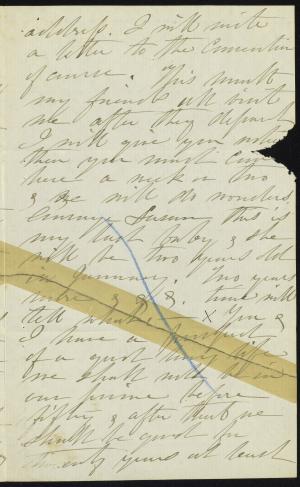 address. I will write
a letter to the Executive
of course. This month
my friends all visit
me after they depart
I will give you notice
then you must come
here a week or two
& we will do wonders,
Susan this is
my last baby & she
will be two years old
in January. Two years
more & time will
tell × You &
I have a
of a good long life
we shall not be in
our prime before
fifty & after that we
shall be good for
twenty years at least